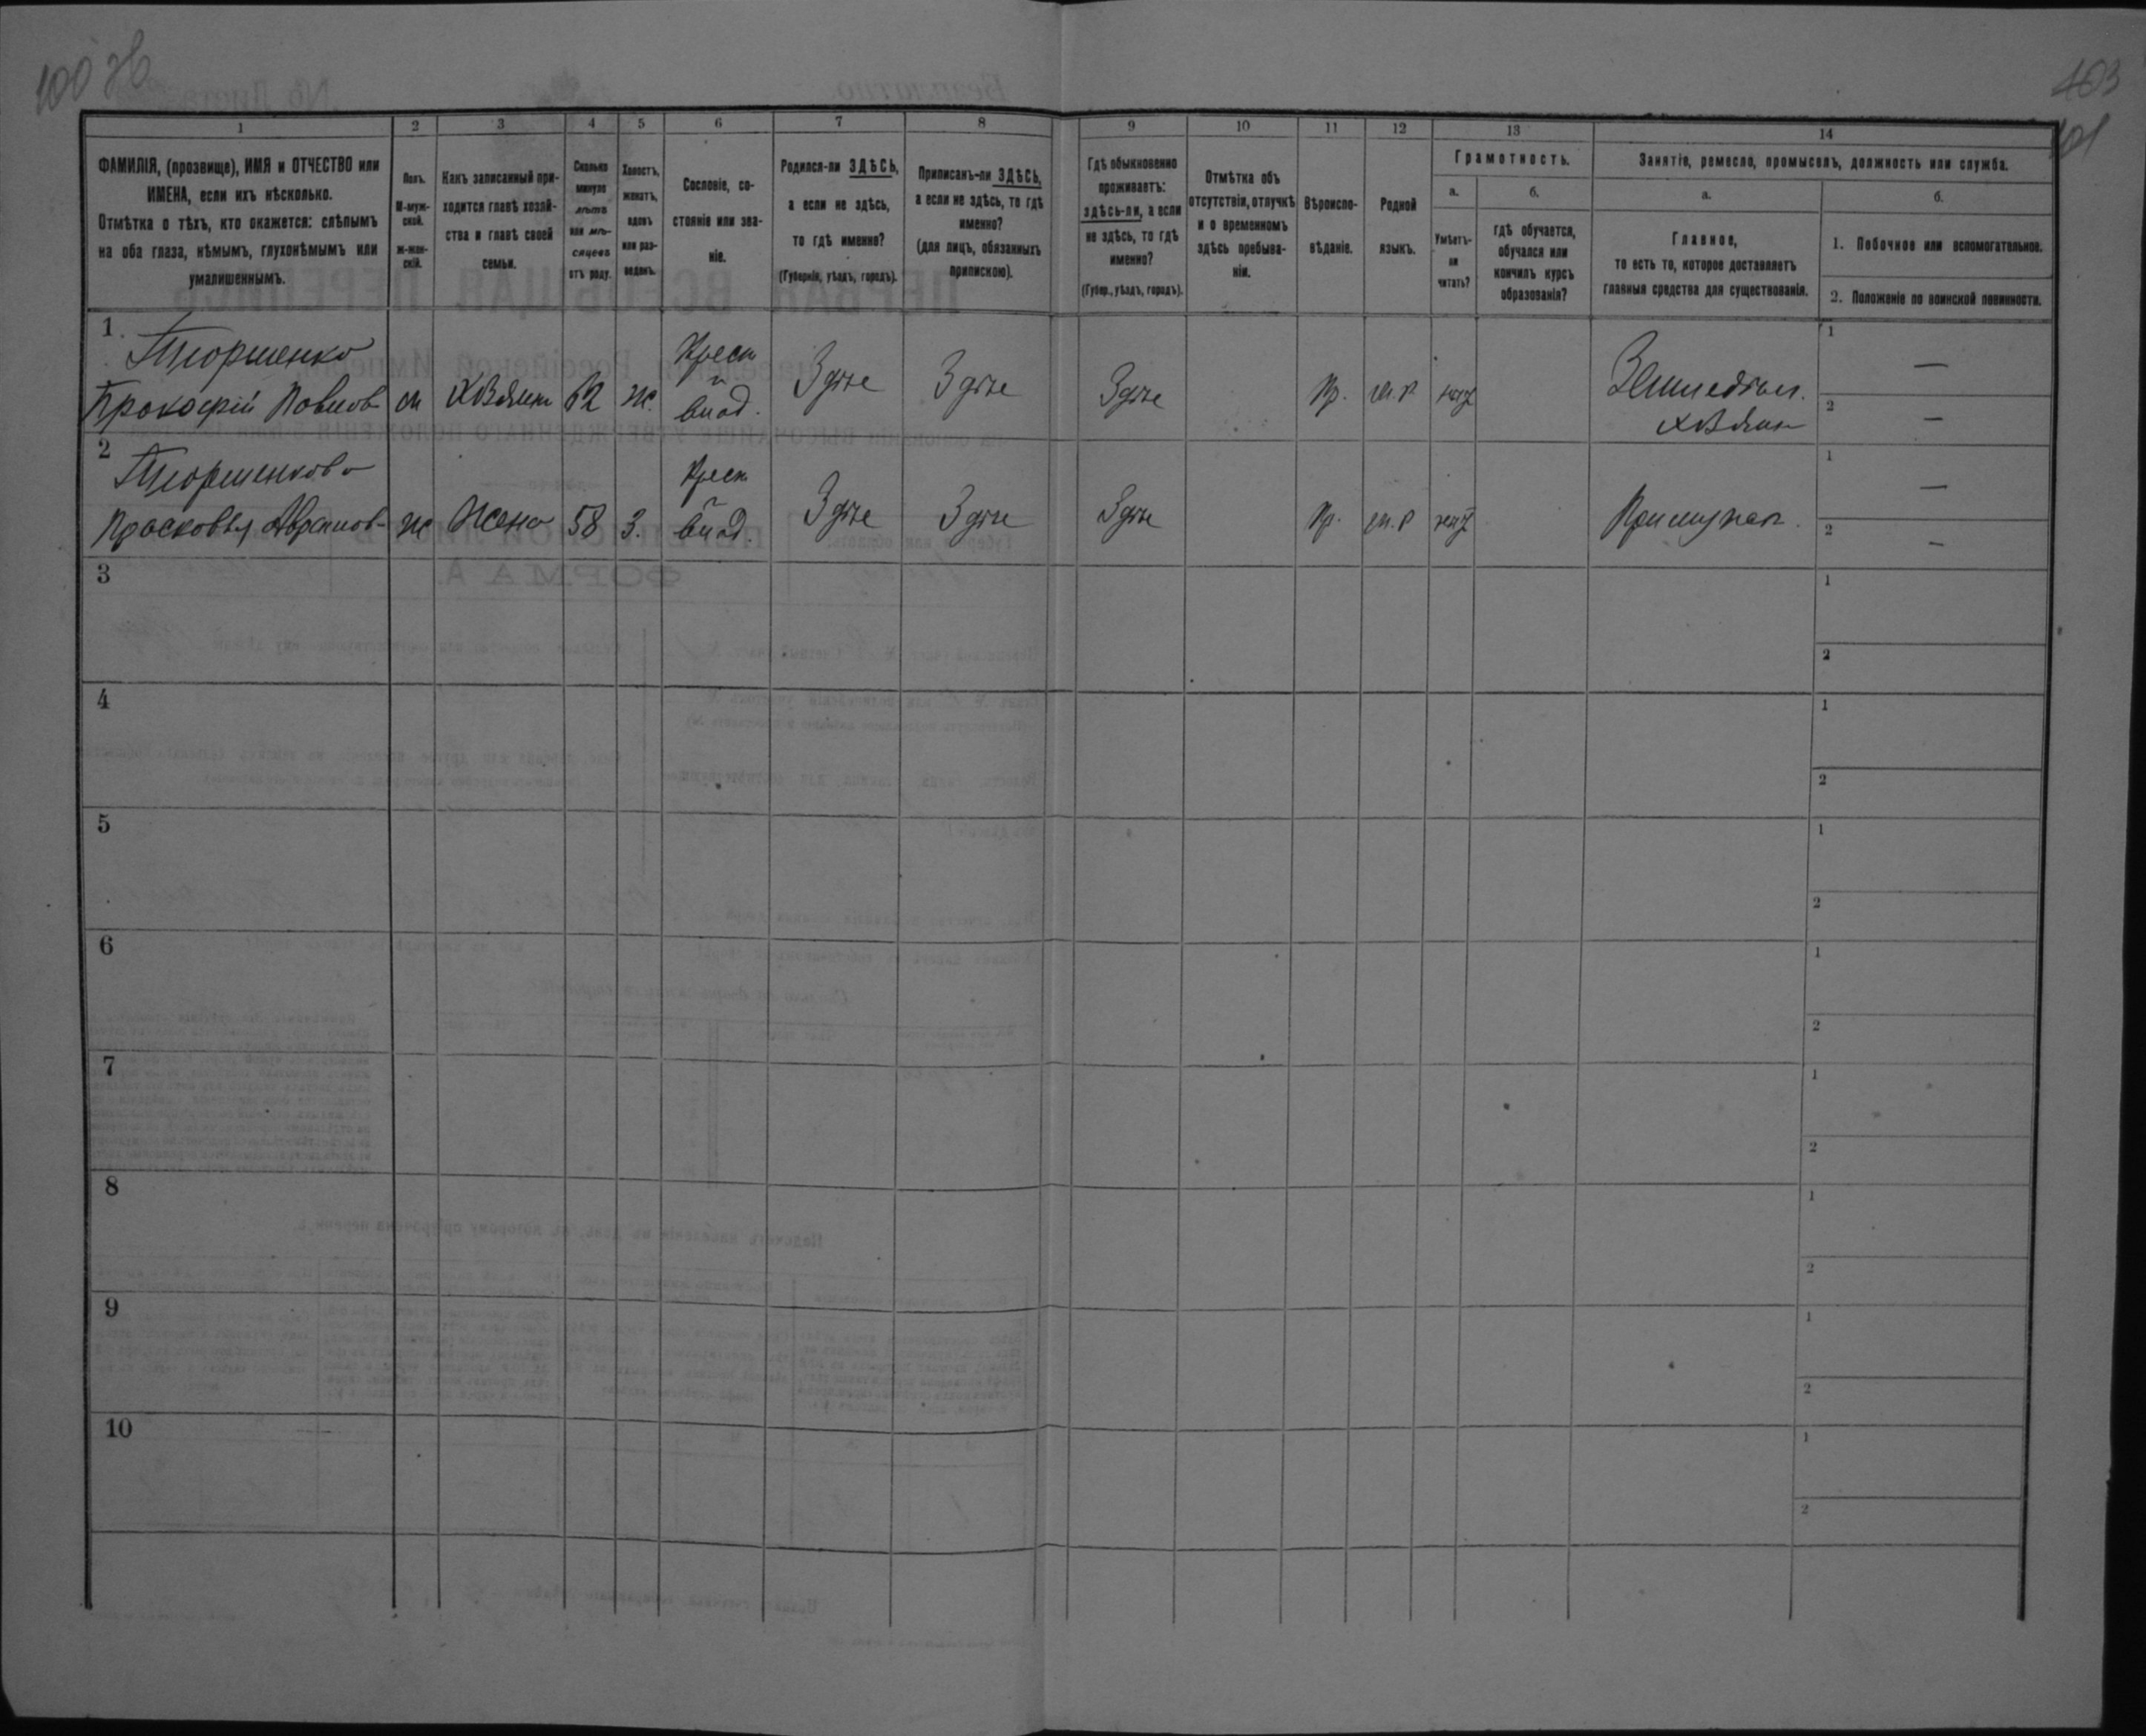 100 об
403
101
1
2
3
4
5
6
7
8
9
10
11
12
13
14
ФАМИЛІЯ, (прозвище), ИМЯ и ОТЧЕСТВО или
ИМЕНА, если ихъ нѣсколько.
Отмѣтка о тѣхъ, кто окажется: слѣпымъ
на оба глаза, нѣмымъ, глухонѣмымъ или
умалишеннымъ.
Полъ.
М-муж-
ской.
ж-жен-
скій.
Какъ записанный при-
ходится главѣ хозяй-
ства и главѣ своей
семьи.
Сколько
минуло
лѣтъ
или мѣ-
сяцевъ
отъ роду.
Холостъ,
женатъ,
вдовъ
или раз-
веденъ.
Сословіе, со-
стояніе или зва-
ніе.
Родился-ли ЗДѢСЬ,
а если не здѣсь,
то гдѣ именно?
(Губернія, уѣздъ, городъ).
Приписанъ-ли ЗДѢСЬ,
а если не здѣсь, то гдѣ
именно?
(для лицъ, обязанныхъ
припискою).
Гдѣ обыкновенно
проживаетъ:
здѣсь-ли, а если
не здѣсь, то гдѣ
именно?
(Губер., уѣздъ, городъ).
Отмѣтка объ
отсутствіи, отлучкѣ
и о временномъ
здѣсь пребыва-
ніи.
Вѣроиспо-
вѣданіе.
Родной
языкъ.
Грамотность.
а.
б.
Умѣетъ-
ли
читать?
гдѣ обучается,
обучался или
кончилъ курсъ
образованія?
Занятіе, ремесло, промыселъ, должность или служба.
а.
б.
Главное,
то есть то, которое доставляетъ
главныя средства для существованія.
1. Побочное или вспомогательное.
2. Положеніе по воинской повинности.
1.
Прокофій Павлов м Хозяин 62 ж.
Крест
влад.
Здѣсь Здѣсь Здѣсь Пр. м.р нѣт
Земледѣл.
хозяин
1 —
2 —
2
Просковья Абрамов ж Жена 58 З.
Крест
влад.
Здѣсь Здѣсь Здѣсь Пр. м.р нѣт
При мужѣ.
1 —
2 —
3
1
2
4
1
2
5
1
2
6
1
2
7
1
2
8
1
2
9
1
2
10
1
2